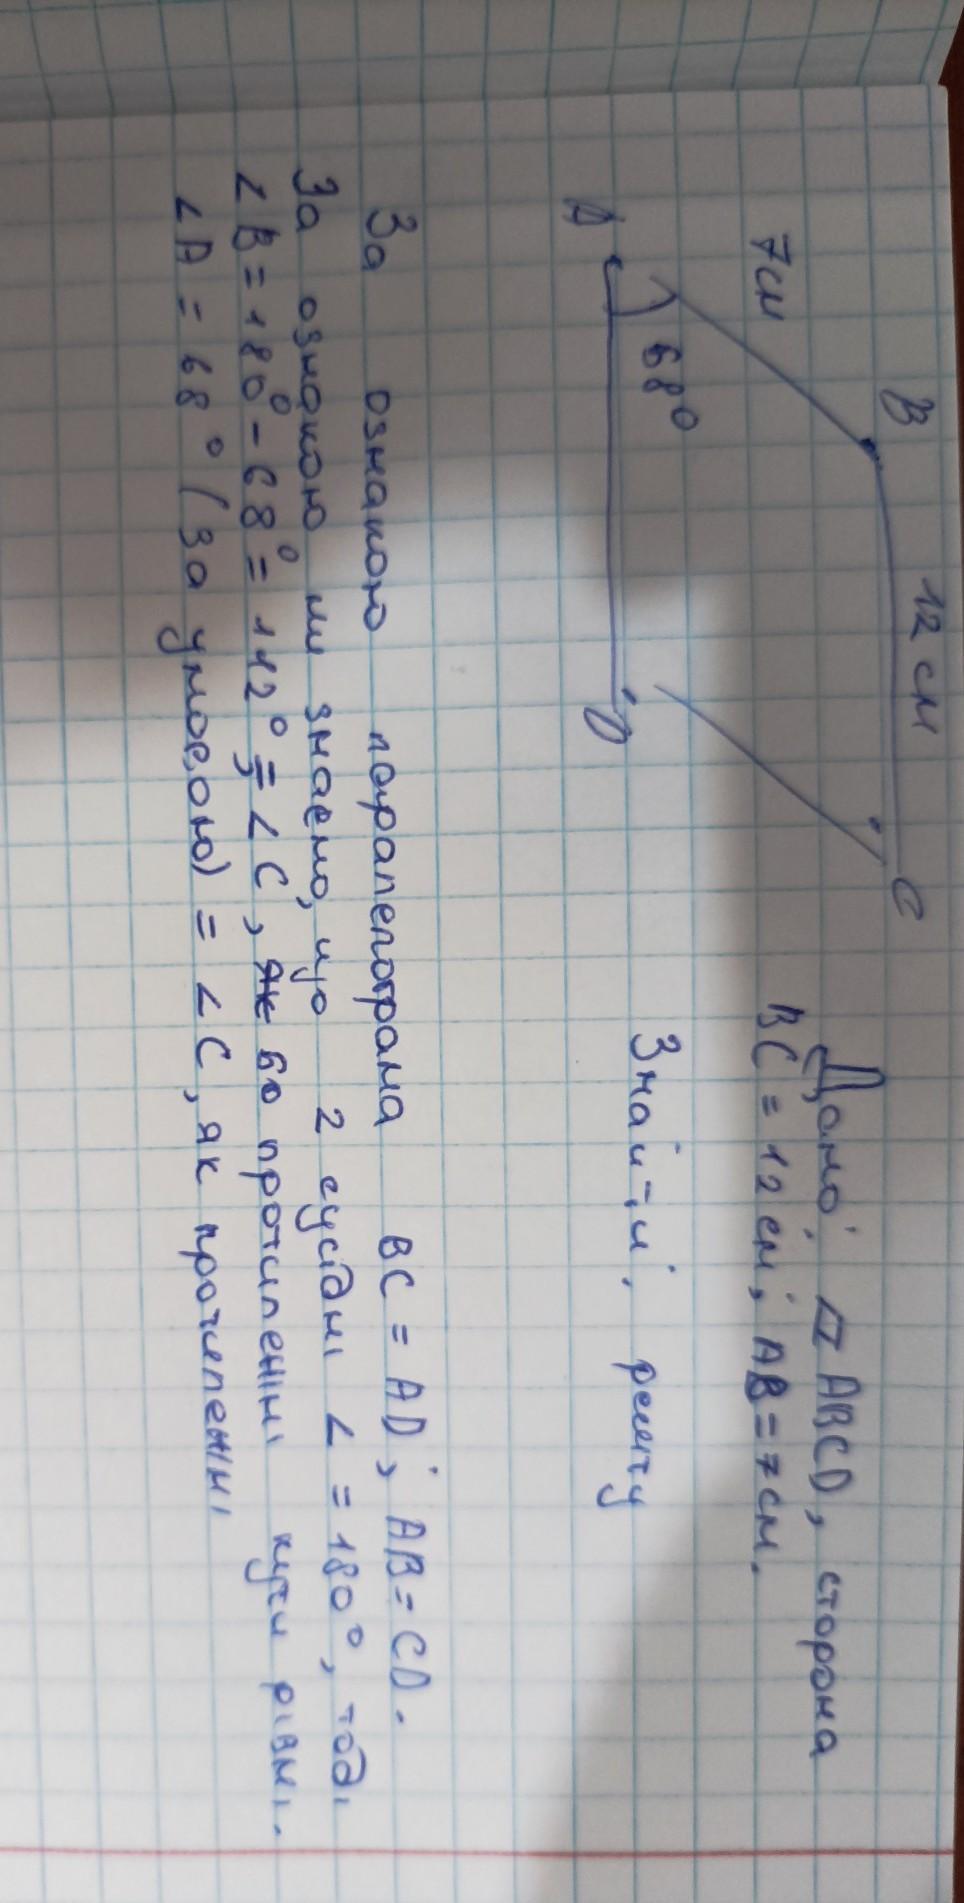 B 12 см C
7см
68°
A D
Дано: ▱ ABCD, сторона
BC = 12 см; AB = 7 см.
Знайти: решту
За ознакою паралелограма BC = AD; AB = CD.
За ознакою ми знаємо, що 2 сусідні ∠ = 180°, тоді
∠B = 180° - 68° = 112° = ∠C, бо протилежні кути рівні.
∠A = 68° (За умовою) = ∠C, як протилежні